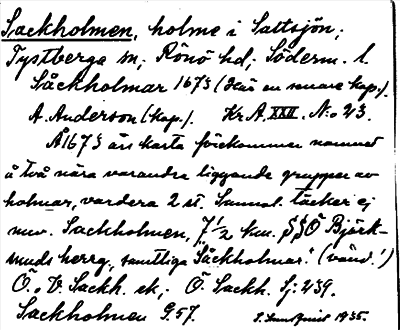 Sackholmen, holme i Saltsjön,
Tystberga sn, Rönö hd, Söderm. l.
Såckholmar 1673 (Här en senare kop.).
A. Anderson (kap.). Kr.A. XXII. No 23.
Å 1673 års karta förekommer namnet
å två nära varandra liggande grupper av
holmar, vardera 2 st. Samnat. täcker ej
nuv. Sackholmen, 7 1/2 km. SSÖ Björk-
lunds herrg., samtliga "Såckholmar." (vänd!)
Ö. o. V. Sackh. ek; Ö. Sackh. Sj: 239.
Sackholmen G.57. 1935.